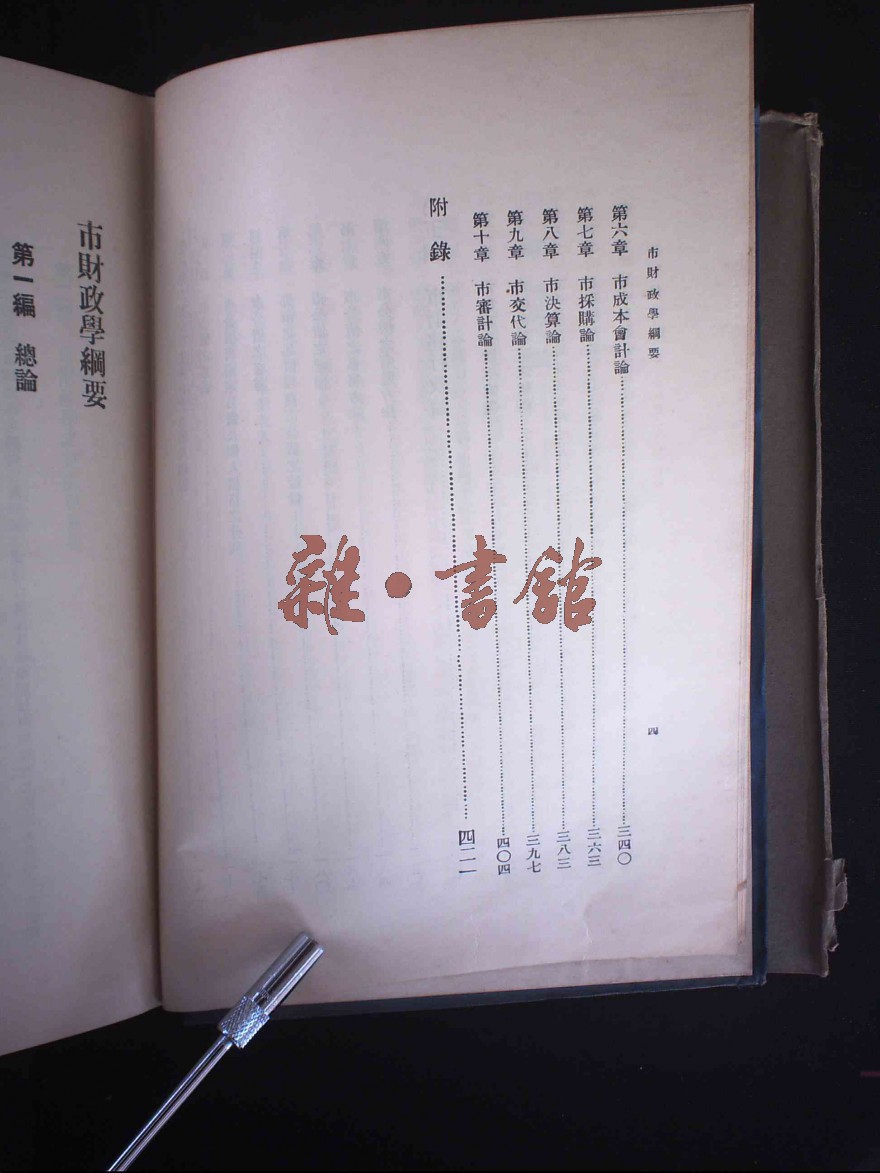 市財政學綱要
四
第六章 市成本會計論……三四〇
第七章 市採購論……三六三
第八章 市決算論……三八三
第九章 市交代論……三九七
第十章 市審計論……四〇四
附錄……四二一
市財政學綱要
第一編 總論
雜·書館